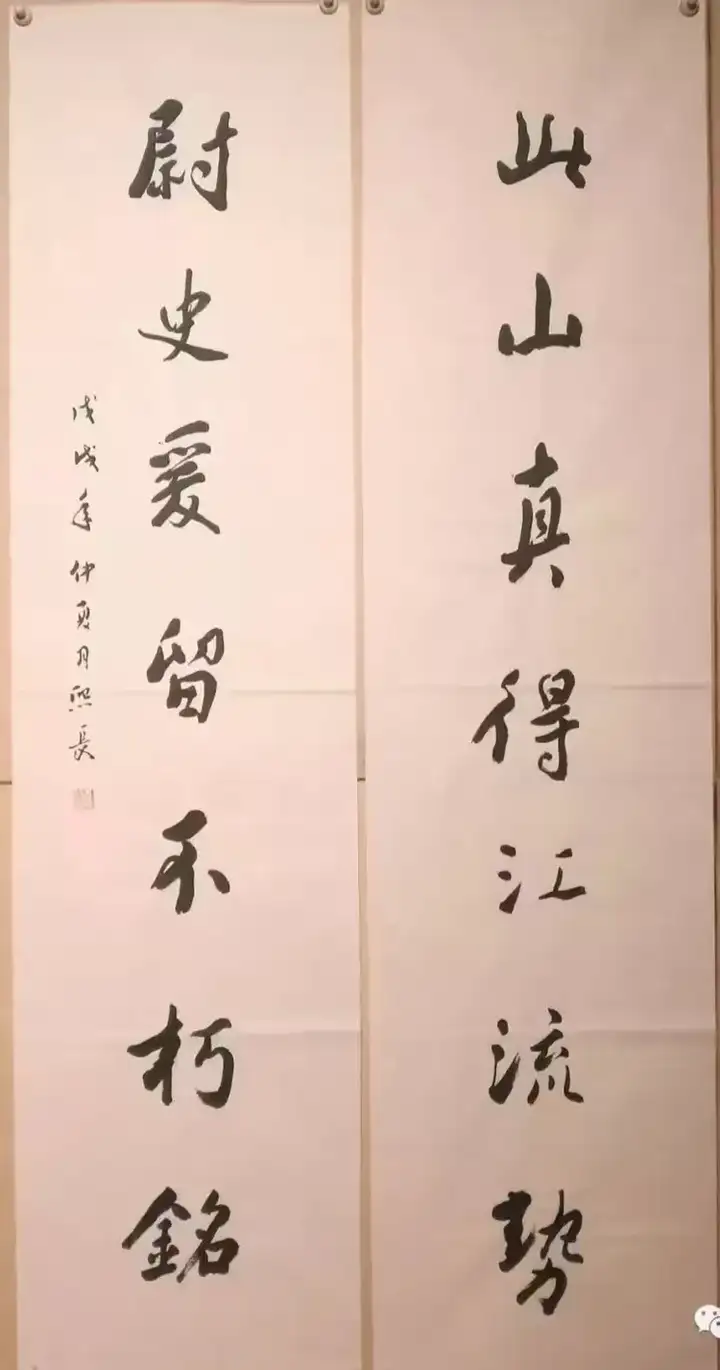 此山真得江流勢
尉史爰留不朽銘
戊戌年仲夏月熙長